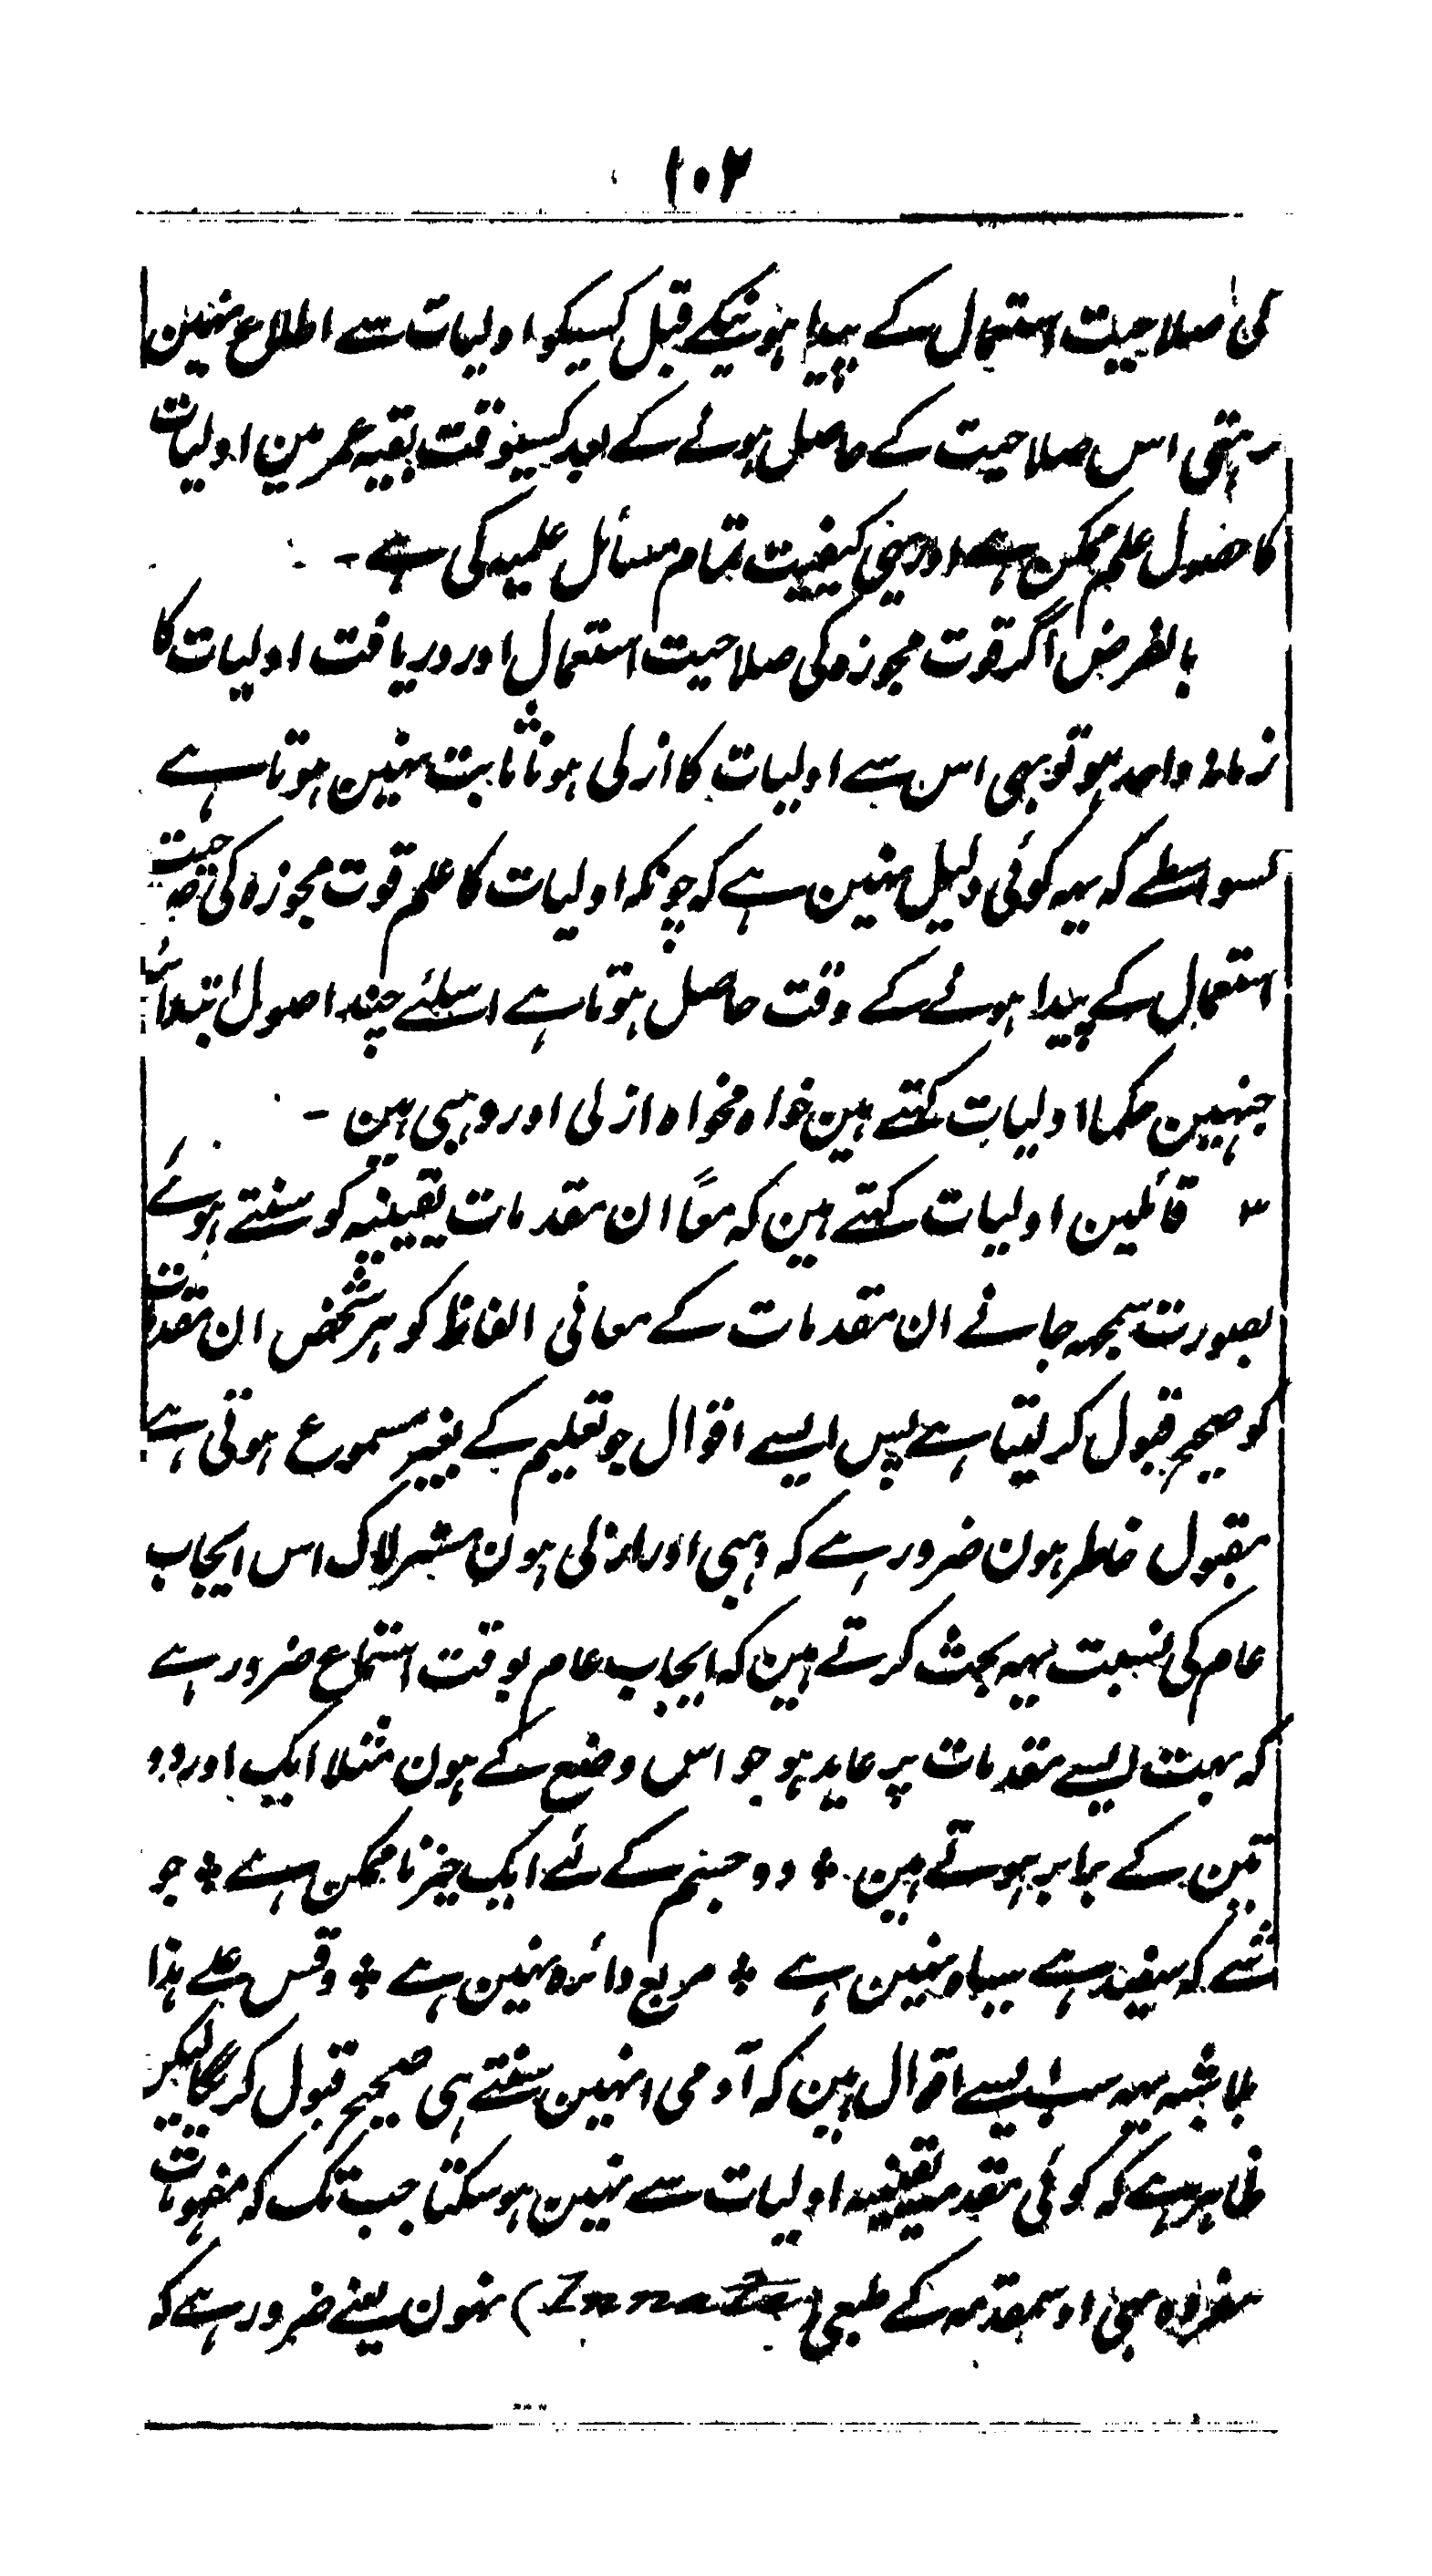 ۱۰۲
کی صلاحیت استعمال کے پیدا ہونیکے قبل کسیکو اولیات سے اطلاع نہین
رہتی اس صلاحیت کے حاصل ہونے کے بعد کسیوقت بقیہ عمر مین اولیات
کا حصول علم ممکن ہے اور یہی کیفیت تمام مسائل علمیہ کی ہے ـ
بالفرض اگر قوت مجوزہ کی صلاحیت استعمال اور دریافت اولیات کا
زمانہ واحد ہو تو بہی اس سے اولیات کا ازلی ہونا ثابت نہین ہوتا ہے
کسواسطے کہ یہہ کوئی دلیل نہین ہے کہ چونکہ اولیات کا علم قوت مجوزہ کی
استعمال کے پیدا ہونے کے وقت حاصل ہوتا ہے اسلئے چند اصول
جنہین حکما اولیات کہتے ہین خواہ مخواہ ازلی اور وہبی ہین ـ
۳ قائلین اولیات کہتے ہین کہ معًا ان مقدمات یقینیہ کو سنتے ہوئے
بصورت سمجہہ جانے ان مقدمات کے معانی الفاظ کو ہر شخص ان مقدمات
کو صحیح قبول کر لیتا ہے پس ایسے اقوال جو تعلیم کے بغیر مسموع ہوتی ہے
مقبول خاطر ہون ضرور ہے کہ وہبی اور ازلی ہون مسٹر لاک اس ایجاب
عام کی نسبت یہہ بحث کرتے ہین کہ ایجاب عام بوقت استماع ضرور ہے
کہ بہت ایسے مقدمات پر عاید ہو جو اس وضع کے ہون مثلا ایک اور دو
تین کے برابر ہوتے ہین ٭ دو جسم کے لئے ایک حیز نا ممکن ہے ٭ جو
شے کہ سفید ہے سیاہ نہین ہے ٭ مربع دائرہ نہین ہے ٭ وقس علے ہذا
بلا شبہہ یہہ سب ایسے اقوال ہین کہ آدمی انہین سنتے ہی صحیح قبول کریگا لیکن
ظاہر ہے کہ کوئی مقدمہ یقینیہ اولیات سے نہین ہو سکتا جب تک کہ مفہومات
مفردہ بہی اوسمقدمہ کے طبعی (Innate) نہون یعنے ضرور ہے کہ